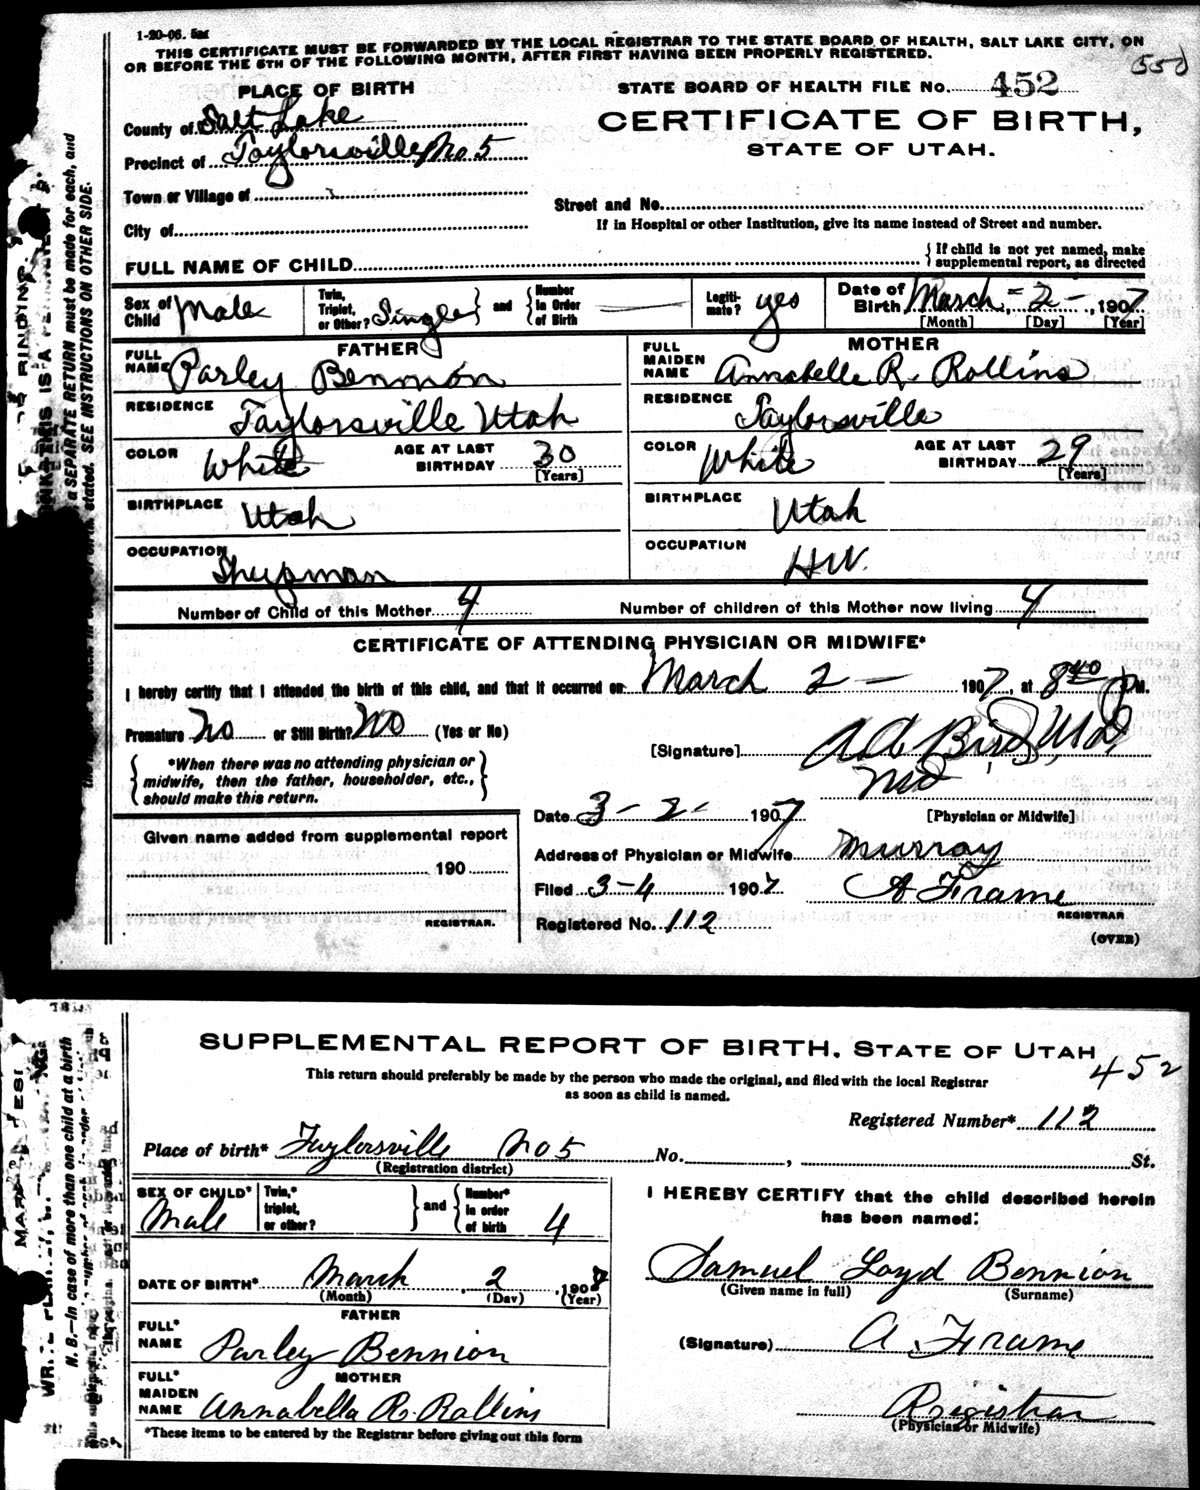 1-20-06. 5m
THIS CERTIFICATE MUST BE FORWARDED BY THE LOCAL REGISTRAR TO THE STATE BOARD OF HEALTH, SALT LAKE CITY, ON
OR BEFORE THE 5TH OF THE FOLLOWING MONTH, AFTER FIRST HAVING BEEN PROPERLY REGISTERED.
550
PLACE OF BIRTH
STATE BOARD OF HEALTH FILE No. 452
County of Salt Lake
CERTIFICATE OF BIRTH,
Precinct of Taylorsville No 5
STATE OF UTAH.
Town or Village of
Street and No.
City of
If in Hospital or other Institution, give its name instead of Street and number.
FULL NAME OF CHILD
If child is not yet named, make
supplemental report, as directed
Sex of Child Male
Twin, Triplet, or Other? Single and Number in Order of Birth
Legitimate? yes
Date of Birth March - 2 -, 1907
[Month] [Day] [Year]
FATHER
MOTHER
FULL NAME Parley Bennion
FULL MAIDEN NAME Annabelle R. Rollins
RESIDENCE Taylorsville Utah
RESIDENCE Taylorsville
COLOR White AGE AT LAST BIRTHDAY 30 [Years]
COLOR White AGE AT LAST BIRTHDAY 29 [Years]
BIRTHPLACE Utah
BIRTHPLACE Utah
OCCUPATION Sheepman
OCCUPATION HW.
Number of Child of this Mother 4 Number of children of this Mother now living 4
CERTIFICATE OF ATTENDING PHYSICIAN OR MIDWIFE*
I hereby certify that I attended the birth of this child, and that it occurred on March 2 - 1907, at 8 40 P M.
Premature No or Still Birth? No (Yes or No)
[Signature] A A Bird, Md,
*When there was no attending physician or
midwife, then the father, householder, etc.,
should make this return.
Md
[Physician or Midwife]
Date 3 - 2 - 1907
Given name added from supplemental report
190
REGISTRAR.
Address of Physician or Midwife Murray
Filed 3-4 1907 A Frame
REGISTRAR
Registered No. 112
(OVER)
a SEPARATE RETURN must be made for each, and
stated. SEE INSTRUCTIONS ON OTHER SIDE.
SUPPLEMENTAL REPORT OF BIRTH. STATE OF UTAH
452
This return should preferably be made by the person who made the original, and filed with the local Registrar
as soon as child is named.
Registered Number* 112
Place of birth* Taylorsville No 5 No. , St.
(Registration district)
SEX OF CHILD* Male
Twin,* triplet, or other? and Number* in order of birth 4
I HEREBY CERTIFY that the child described herein
has been named:
DATE OF BIRTH* March 2, 1907
(Month) (Day) (Year)
Samuel Loyd Bennion
(Given name in full) (Surname)
FATHER
FULL* NAME Parley Bennion
(Signature) A. Frame
MOTHER
FULL* MAIDEN NAME Annabella R. Rollins
Registrar
(Physician or Midwife)
*These items to be entered by the Registrar before giving out this form
N. B.—In case of more than one child at a birth